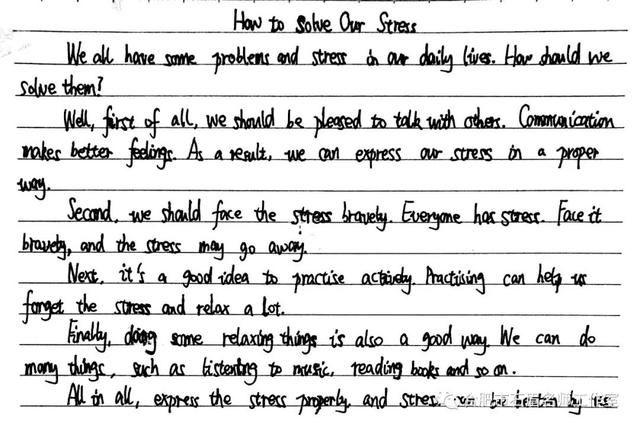 How to Solve Our Stress
We all have some problems and stress in our daily lives. How should we
solve them?
Well, first of all, we should be pleased to talk with others. Communication
makes better feelings. As a result, we can express our stress in a proper
way.
Second, we should face the stress bravely. Everyone has stress. Face it
bravely, and the stress may go away.
Next, it's a good idea to practise actively. Practising can help us
forget the stress and relax a lot.
Finally, doing some relaxing things is also a good way. We can do
many things, such as listening to music, reading books and so on.
All in all, express the stress properly, and stress can be beaten by us